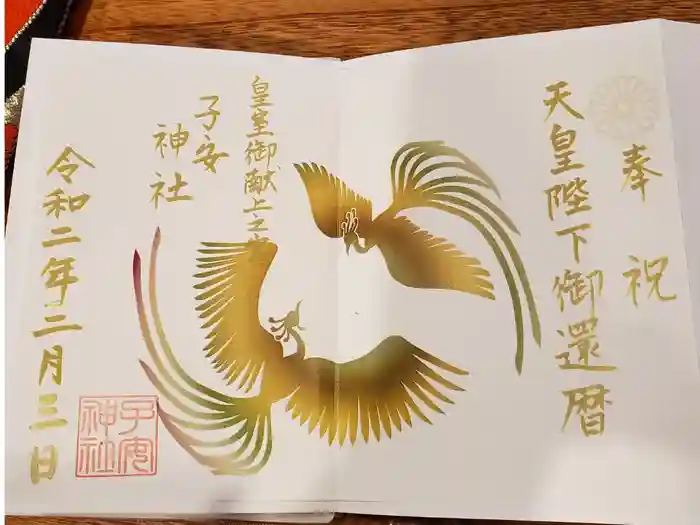 奉祝
天皇陛下御還暦
皇室御献上之
子安
神社
令和二年二月三日
子安
神社